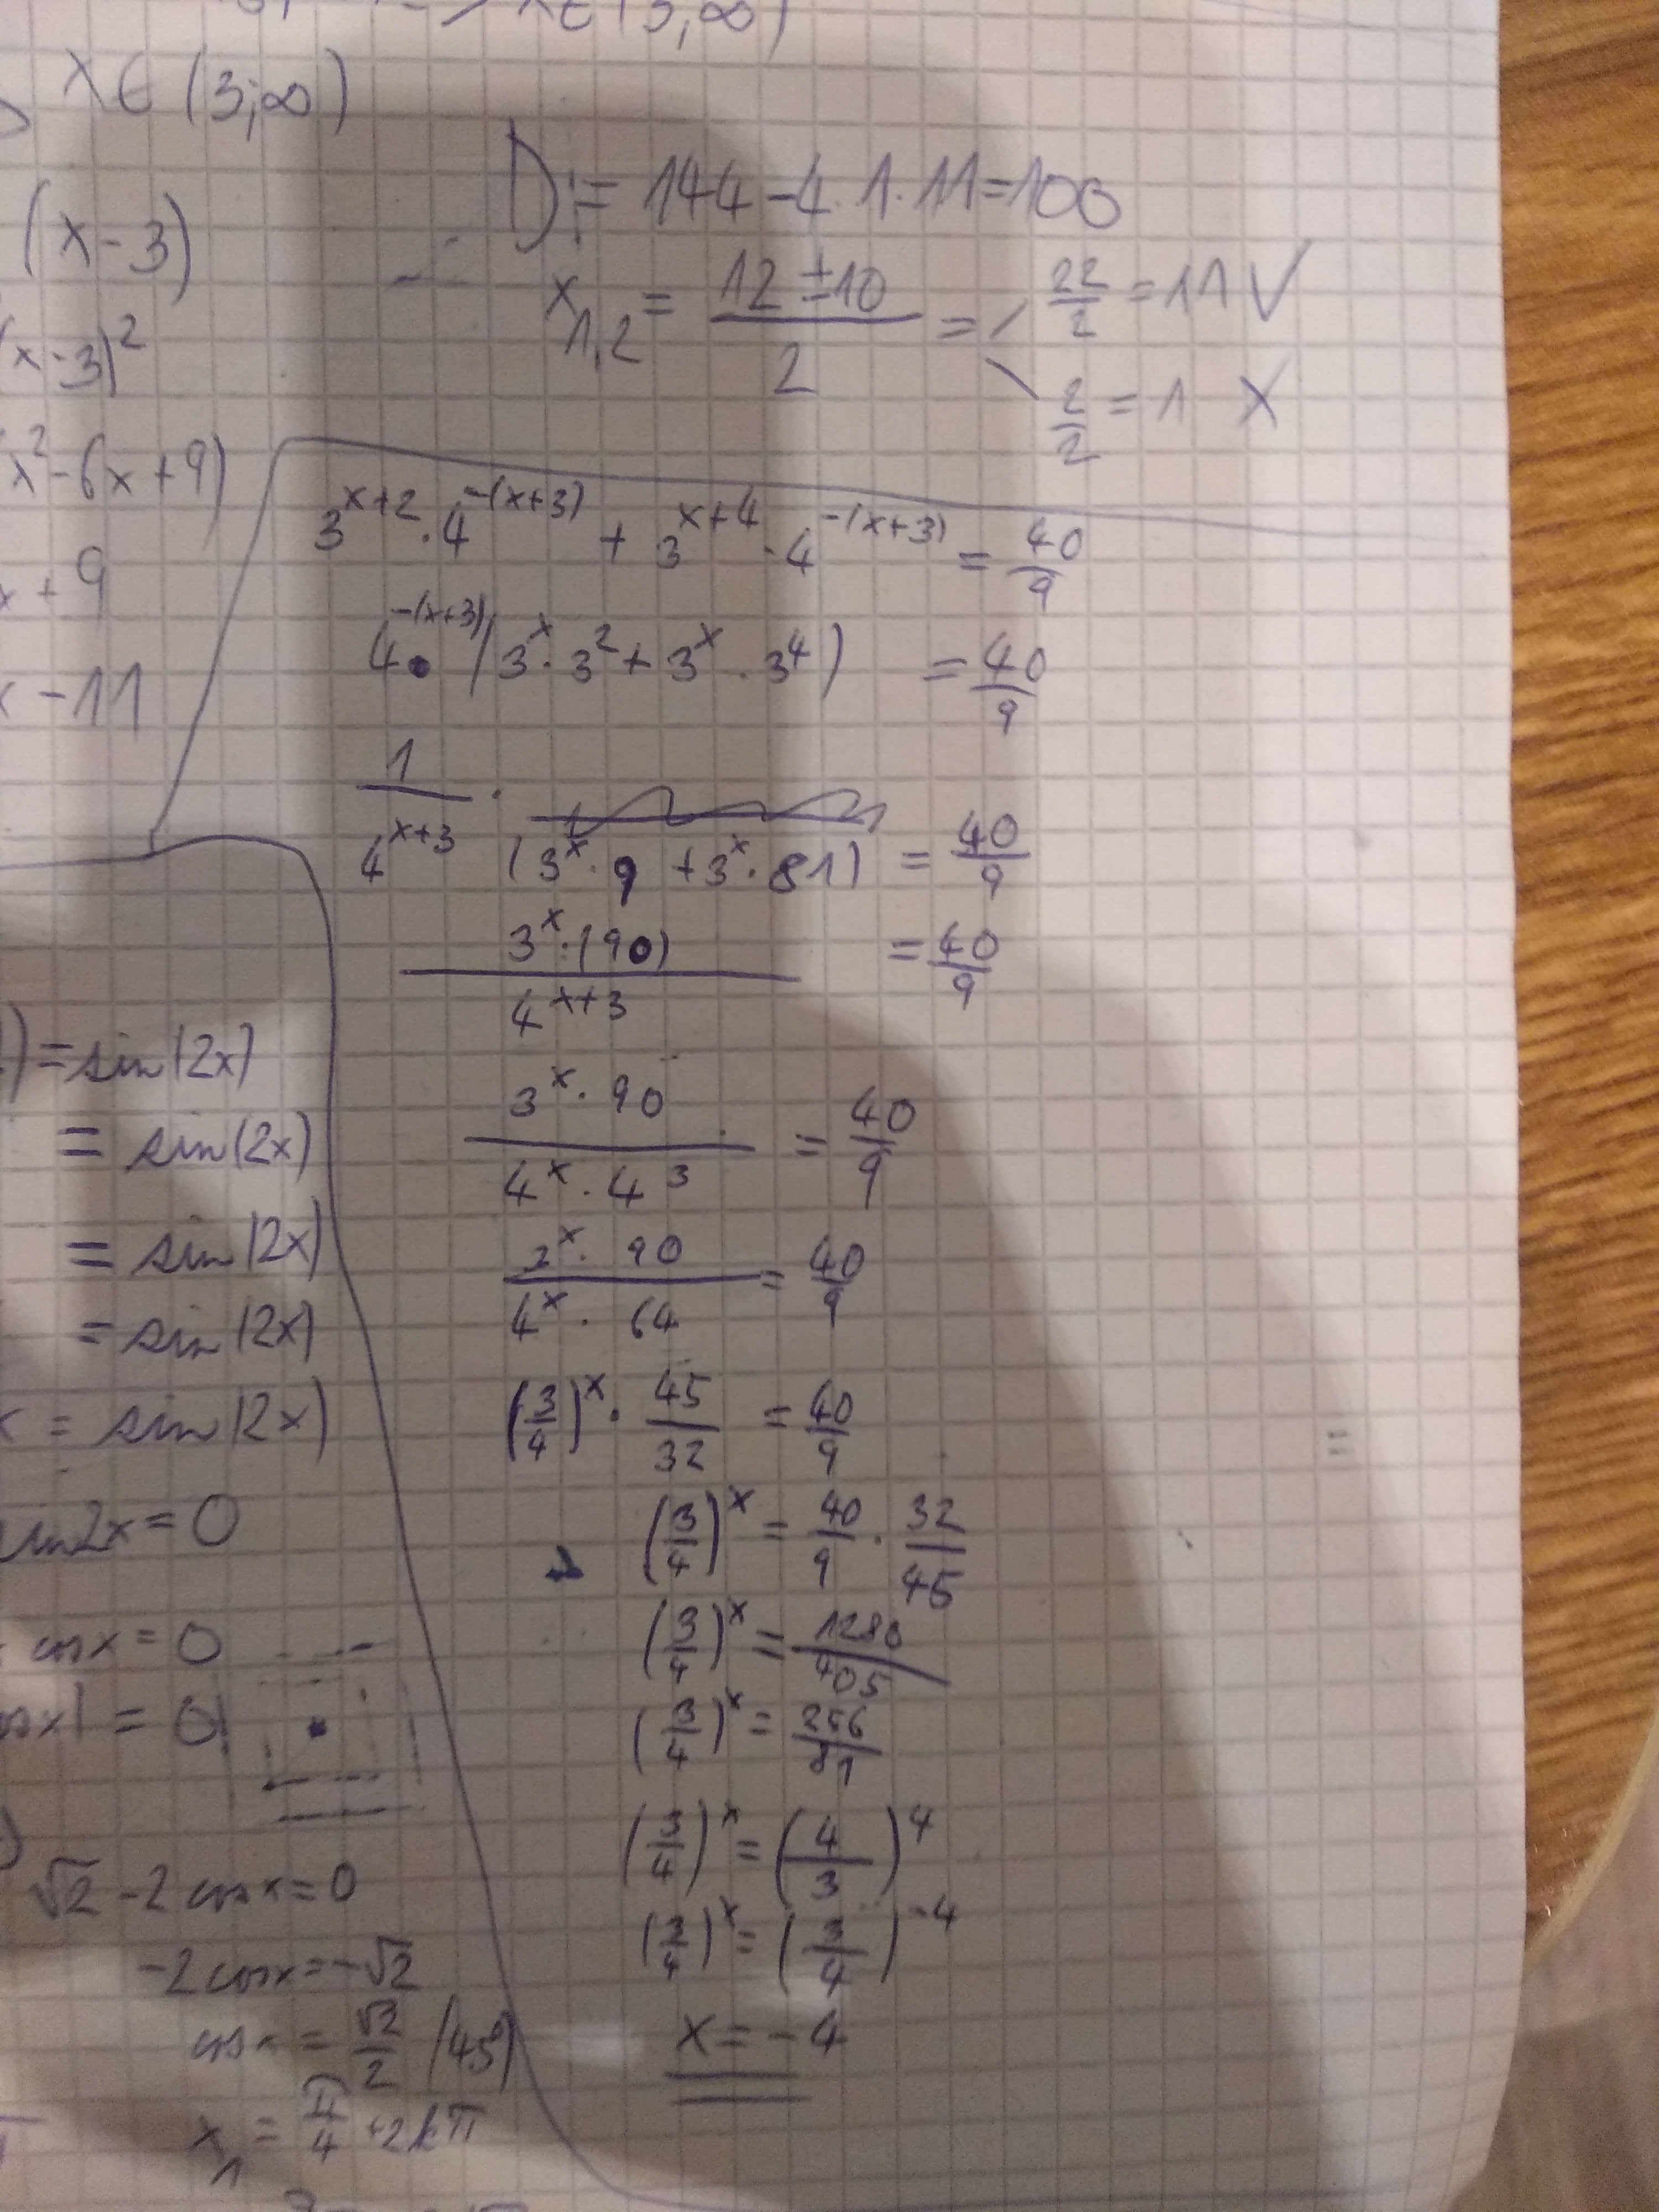 x∈(3;∞)
x∈(3;∞)
(x-3)
(x-3)²
x²-6x+9)
x+9
x-11
D:= 144-4.1.11=100
x₁,₂ = (12±10)/2 = 22/2 = 11 V
2/2 = 1 X
3^(x+2) · 4^(-(x+3)) + 3^(x+4) · 4^(-(x+3)) = 40/9
4^(-(x+3)) · (3^x · 3² + 3^x · 3⁴) = 40/9
1/4^(x+3) · (3^x · 9 + 3^x · 81) = 40/9
3^x · (90) / 4^(x+3) = 40/9
3^x · 90 / 4^x · 4³ = 40/9
3^x · 90 / 4^x · 64 = 40/9
(3/4)^x · 45/32 = 40/9
(3/4)^x = 40/9 · 32/45
(3/4)^x = 1280/405
(3/4)^x = 256/81
(3/4)^x = (4/3)^4
(3/4)^x = (3/4)^-4
x = -4
) = sin(2x)
= sin(2x)
= sin(2x)
= sin(2x)
x = sin(2x)
sin2x = 0
cosx = 0
cosx) = 0
√2 - 2cosx = 0
-2cosx = -√2
cosx = √2/2 (45°)
x₁ = π/4 + 2kπ